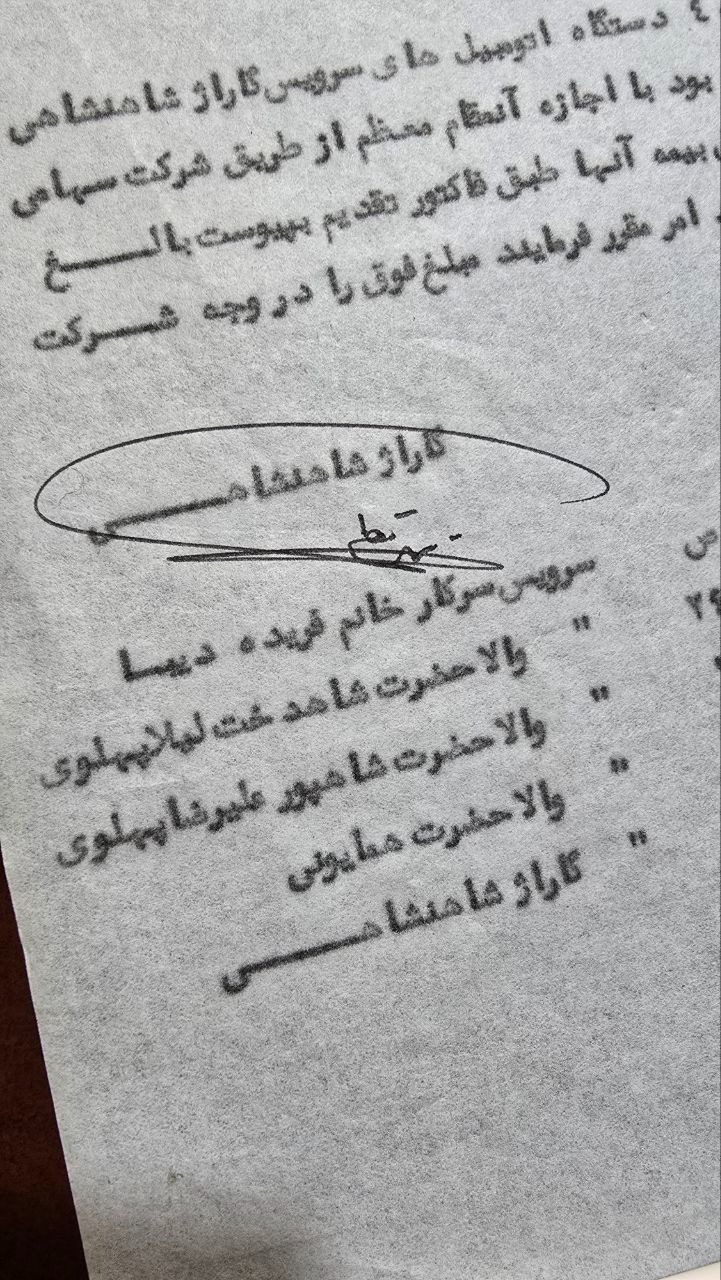 ٤ دستگاه اتومبیل های سرویس گاراژ شاهنشاهی
بود با اجازه آنمقام معظم از طریق شرکت سهامی
بیمه آنها طبق فاکتور تقدیم بپیوست بالــــغ
امر مقرر فرمایند مبلغ فوق را در وجه شــرکت
گاراژ شاهنشاهــــی
سرویس سرکار خانم فریده دیبــا
" والاحضرت شاهدخت لیلا پهلوی
۲۹ " والاحضرت شاهپور علیرضا پهلوی
" والاحضرت همایونی
" گاراژ شاهنشاهــــی